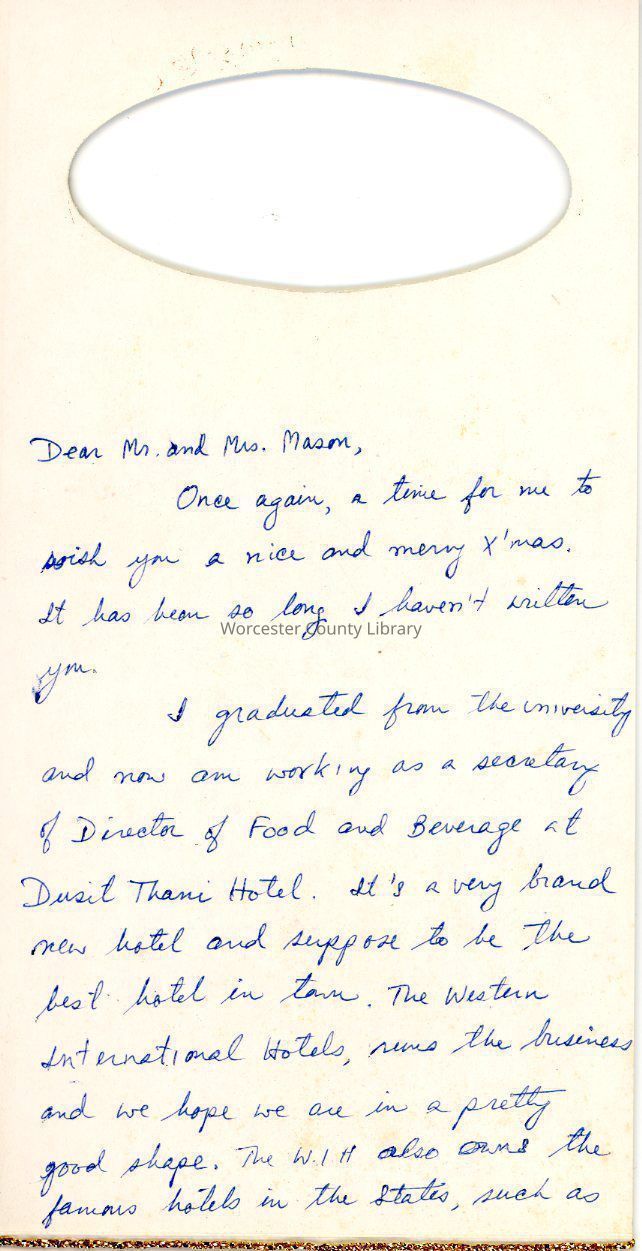 Dear Mr. and Mrs. Mason,
Once again, a time for me to
wish you a nice and merry X'mas.
It has been so long I haven't written
Worcester County Library
you.
I graduated from the university
and now am working as a secretary
of Director of Food and Beverage at
Dusit Thani Hotel. It's a very brand
new hotel and suppose to be the
best hotel in town. The Western
International Hotels, runs the business
and we hope we are in a pretty
good shape. The W.I H also owns the
famous hotels in the States, such as